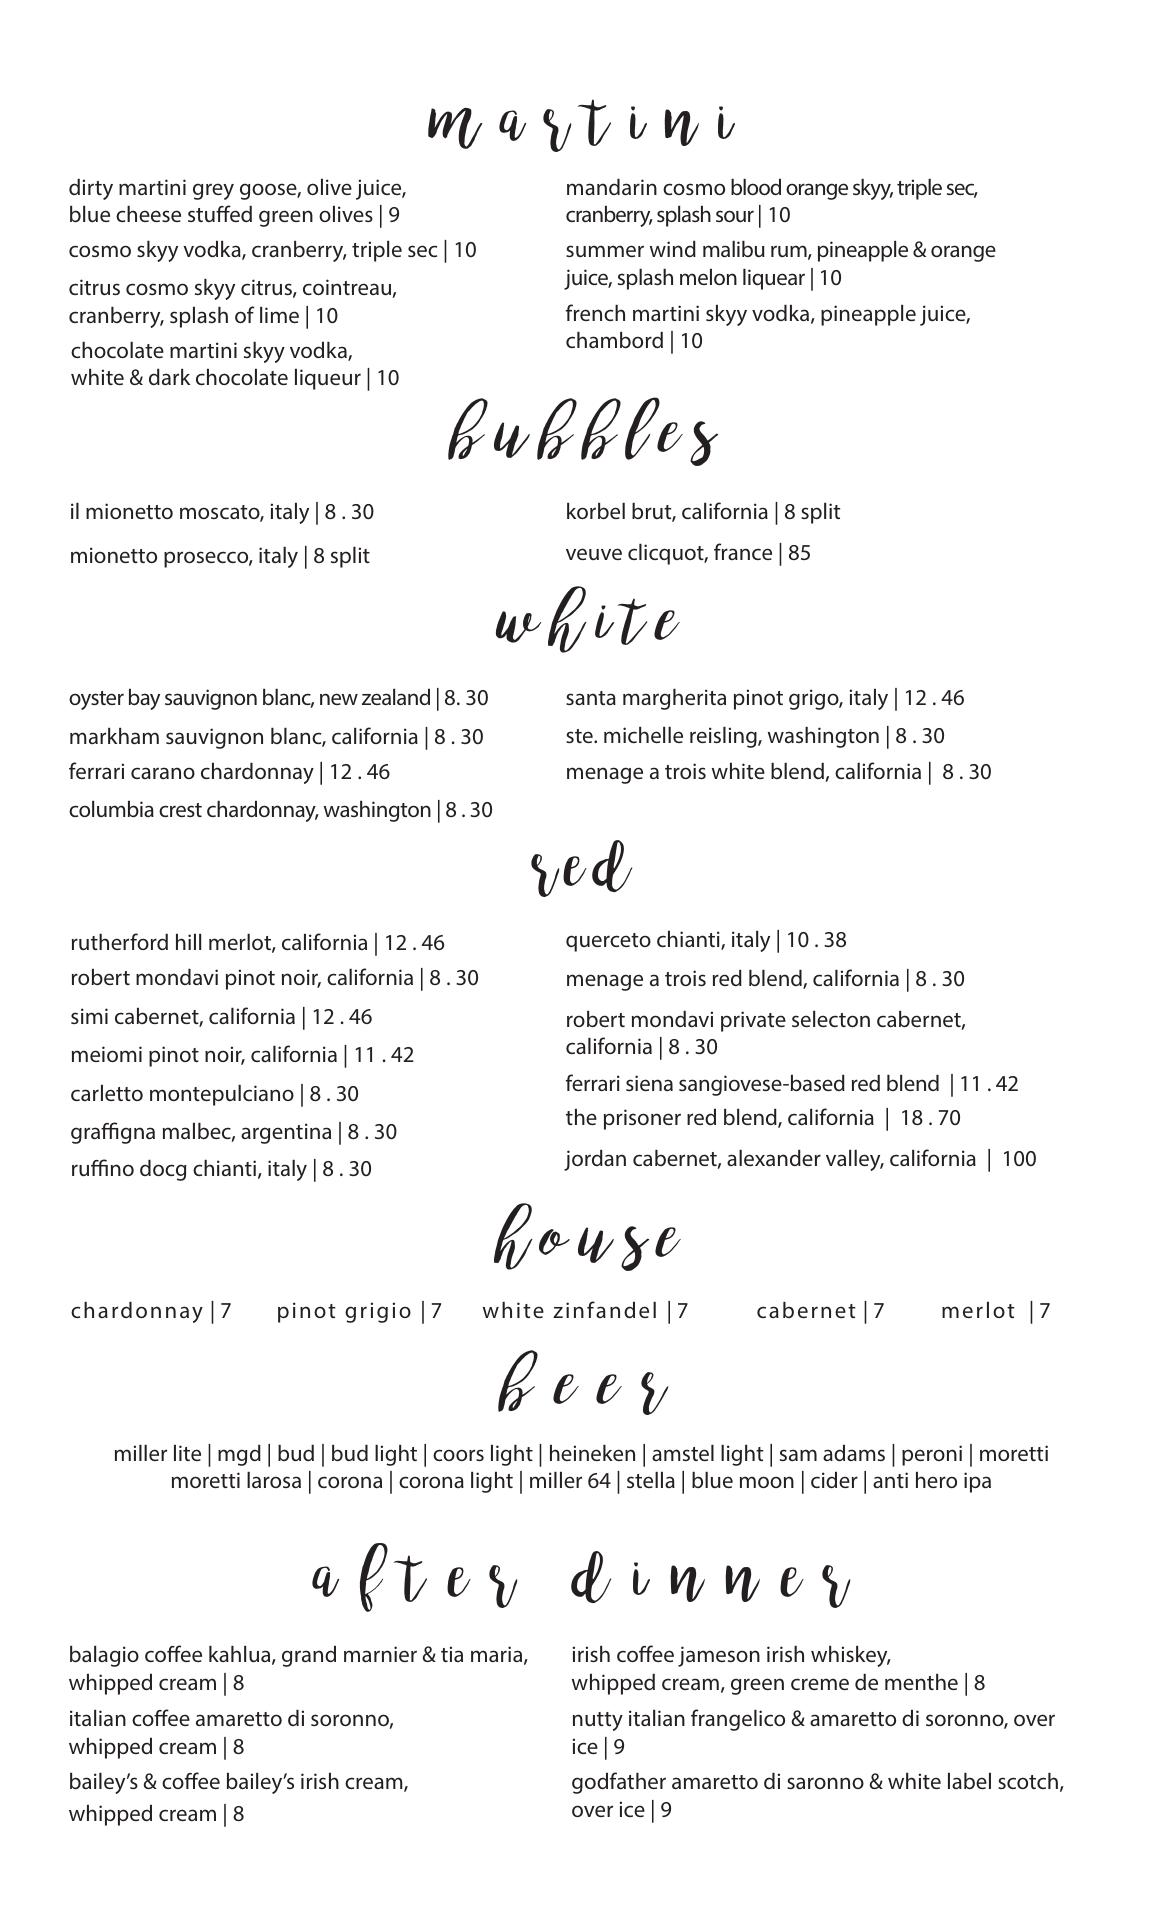 martini
dirty martini grey goose, olive juice,
blue cheese stuffed green olives | 9
cosmo skyy vodka, cranberry, triple sec | 10
citrus cosmo skyy citrus, cointreau,
cranberry, splash of lime | 10
chocolate martini skyy vodka,
white & dark chocolate liqueur | 10
mandarin cosmo blood orange skyy, triple sec,
cranberry, splash sour | 10
summer wind malibu rum, pineapple & orange
juice, splash melon liquear | 10
french martini skyy vodka, pineapple juice,
chambord | 10
bubbles
il mionetto moscato, italy | 8 . 30
mionetto prosecco, italy | 8 split
korbel brut, california | 8 split
veuve clicquot, france | 85
white
oyster bay sauvignon blanc, new zealand | 8. 30
markham sauvignon blanc, california | 8 . 30
ferrari carano chardonnay | 12 . 46
columbia crest chardonnay, washington | 8 . 30
santa margherita pinot grigo, italy | 12 . 46
ste. michelle reisling, washington | 8 . 30
menage a trois white blend, california | 8 . 30
red
rutherford hill merlot, california | 12 . 46
robert mondavi pinot noir, california | 8 . 30
simi cabernet, california | 12 . 46
meiomi pinot noir, california | 11 . 42
carletto montepulciano | 8 . 30
graffigna malbec, argentina | 8 . 30
ruffino docg chianti, italy | 8 . 30
querceto chianti, italy | 10 . 38
menage a trois red blend, california | 8 . 30
robert mondavi private selecton cabernet,
california | 8 . 30
ferrari siena sangiovese-based red blend | 11 . 42
the prisoner red blend, california | 18 . 70
jordan cabernet, alexander valley, california | 100
house
chardonnay | 7 pinot grigio | 7 white zinfandel | 7 cabernet | 7 merlot | 7
beer
miller lite | mgd | bud | bud light | coors light | heineken | amstel light | sam adams | peroni | moretti
moretti larosa | corona | corona light | miller 64 | stella | blue moon | cider | anti hero ipa
after dinner
balagio coffee kahlua, grand marnier & tia maria,
whipped cream | 8
italian coffee amaretto di soronno,
whipped cream | 8
bailey's & coffee bailey's irish cream,
whipped cream | 8
irish coffee jameson irish whiskey,
whipped cream, green creme de menthe | 8
nutty italian frangelico & amaretto di soronno, over
ice | 9
godfather amaretto di saronno & white label scotch,
over ice | 9